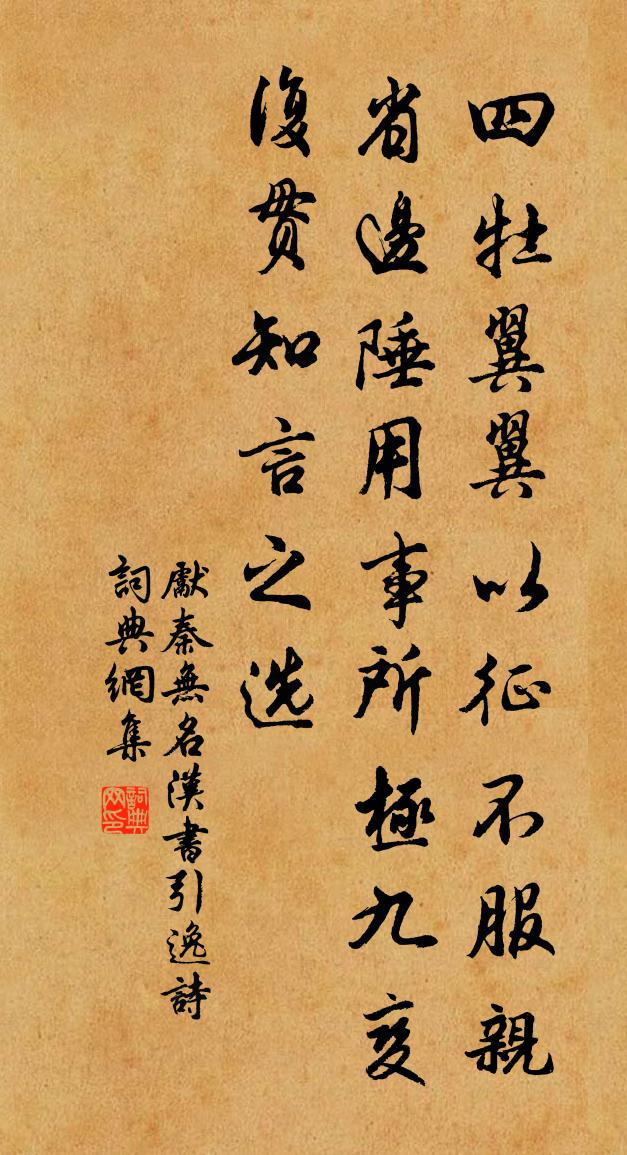 四牡翼翼以征不服親
省邊陲用事所極九变
復貫知言之选
獻秦無名漢書引逸詩
詞典網集
詞典
网印